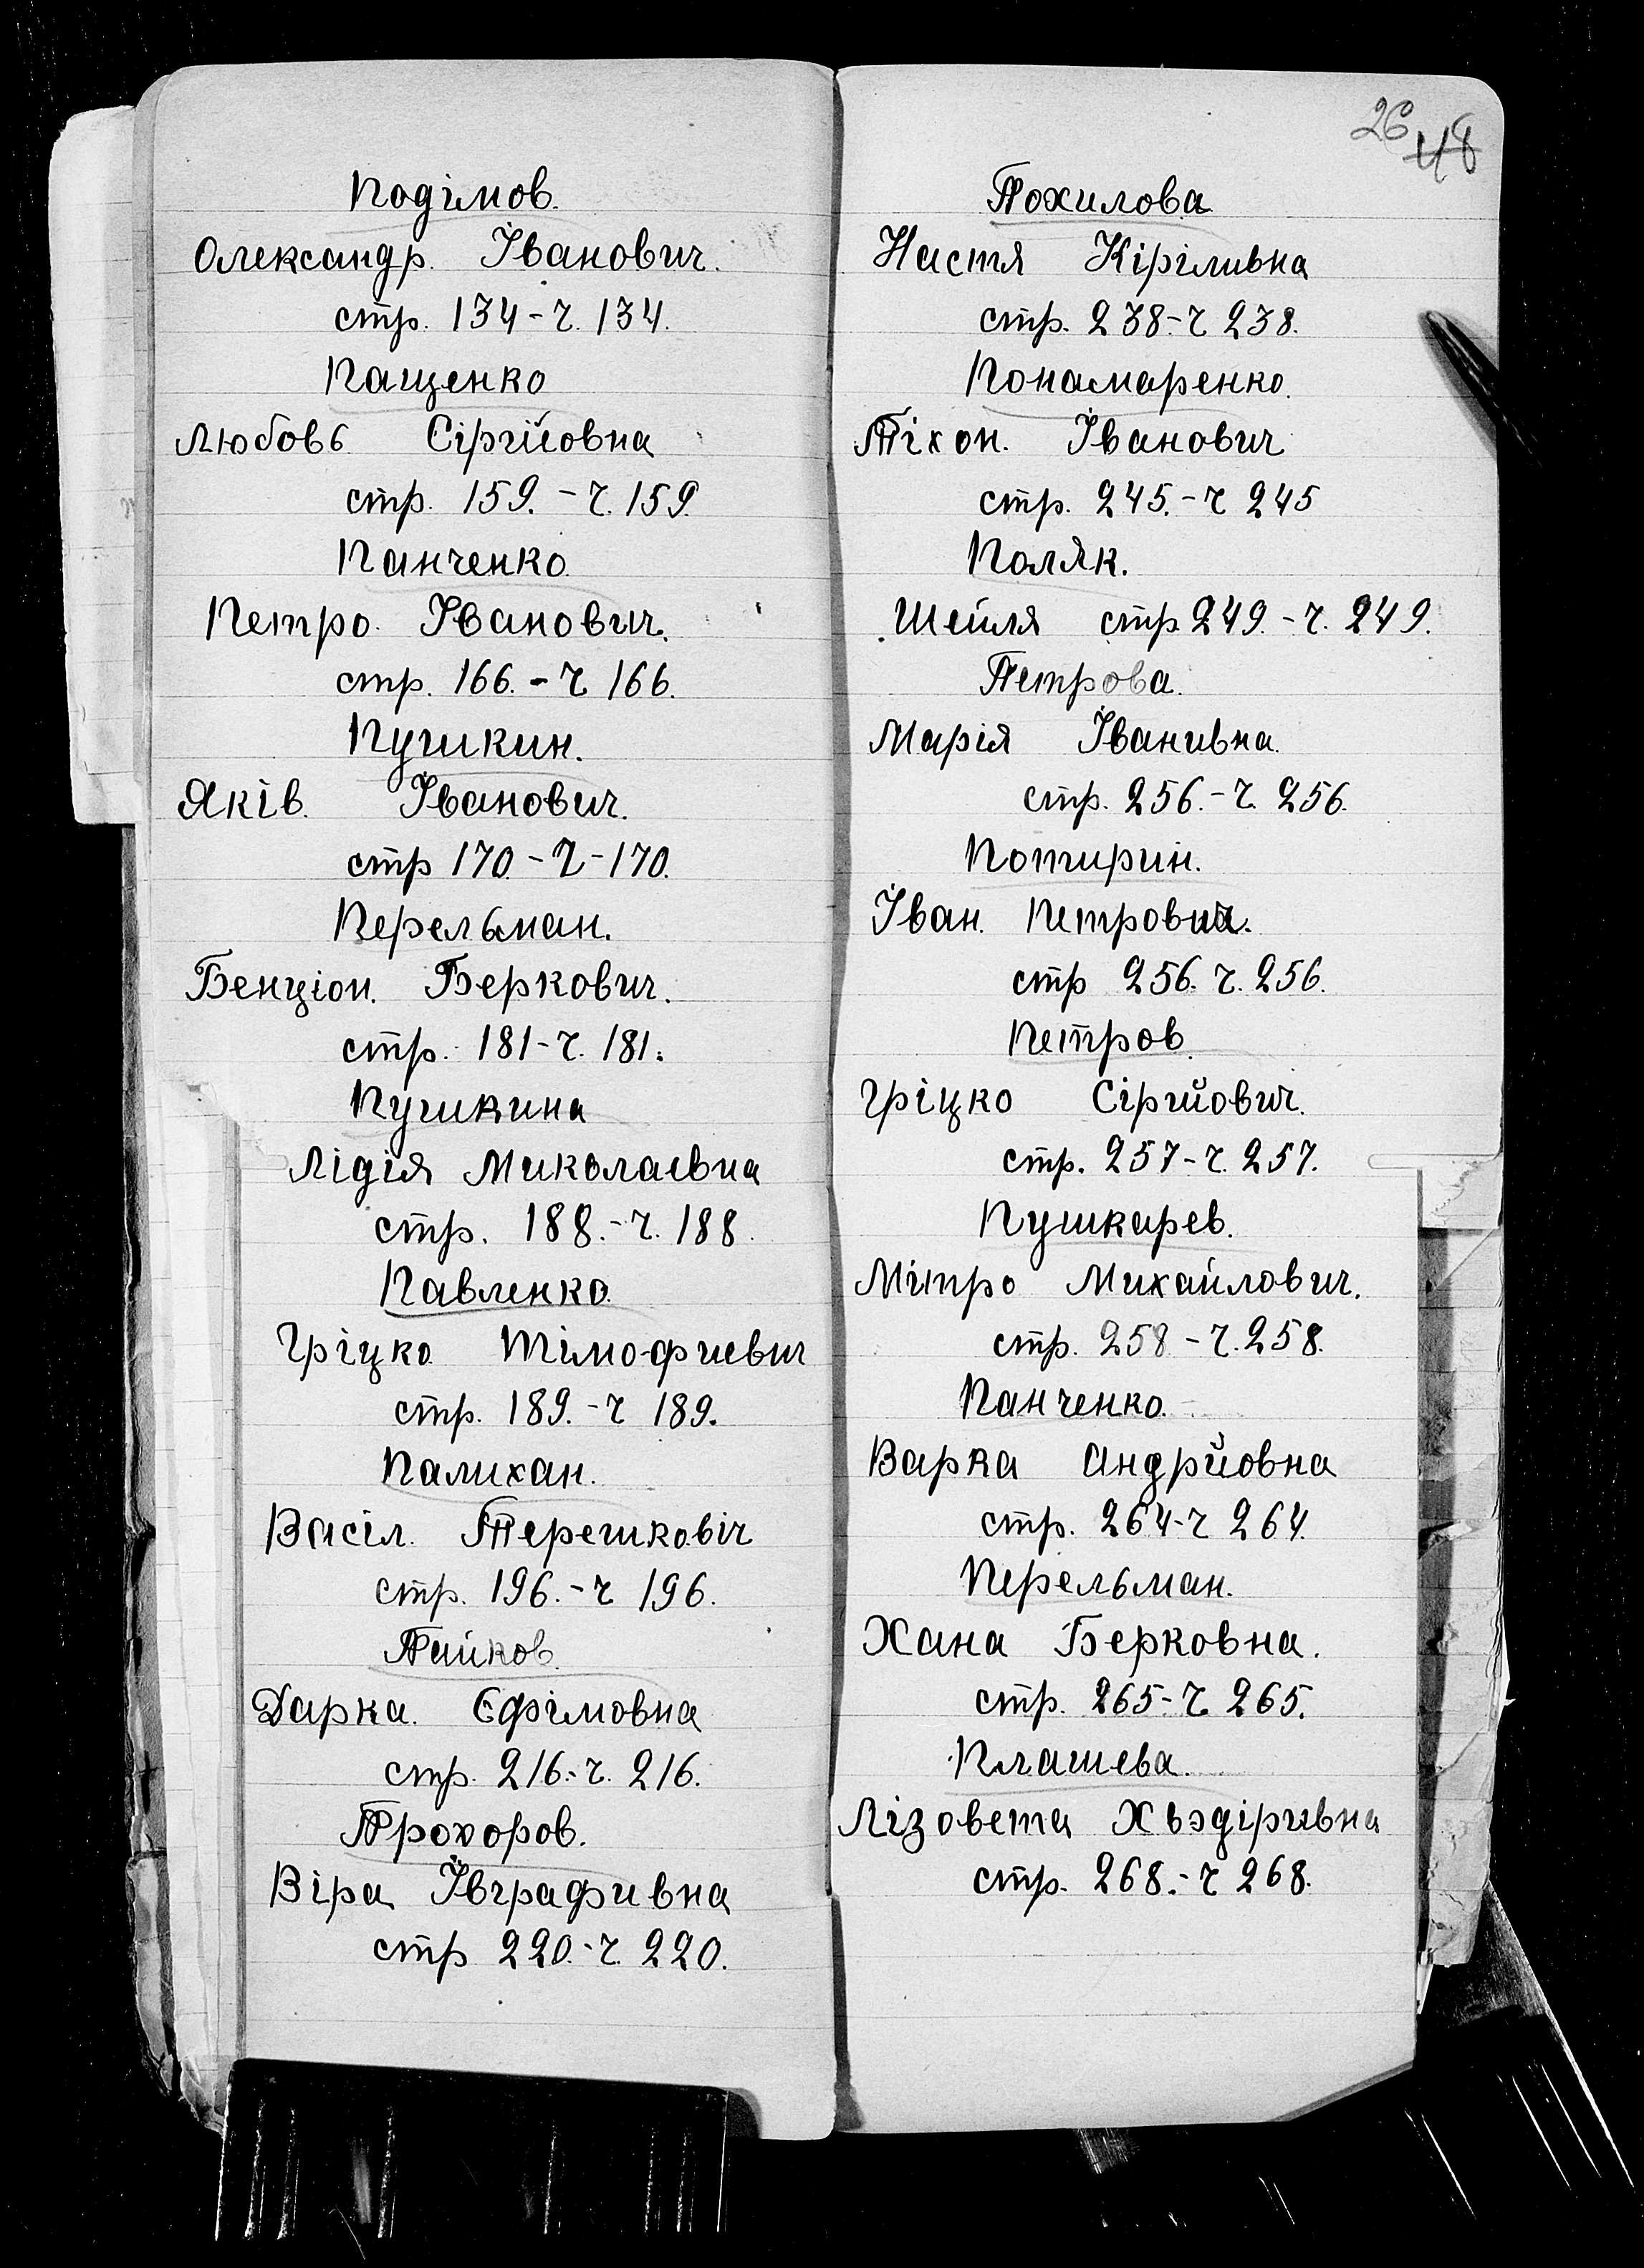 Подімов.
Олександр. Іванович.
стр. 134 - ч. 134.
Пащенко
Любовь Сіргійовна
стр. 159. - ч. 159.
Панченко.
Петро. Іванович.
стр. 166. - ч 166.
Пушкин.
Яків. Іванович.
стр 170 - ч - 170.
Перельман.
Бенціон. Беркович.
стр. 181 - ч. 181.
Пушкина
Лідія Миколаевна
стр. 188. - ч. 188.
Павленко.
Гріцко Тімофиевич
стр. 189. - ч 189.
Палихан.
Васіл. Терешковіч
стр. 196. - ч 196.
Пайков.
Дарка. Єфімовна
стр. 216. - ч. 216.
Прохоров.
Віра Івграфивна
стр 220. - ч. 220.
26 48
Похилова
Настя Кіріливна
стр. 238. - ч 238.
Понамаренко.
Тіхон. Іванович
стр. 245. - ч 245
Поляк.
Шейля стр 249. - ч. 249.
Петрова.
Марія Іванивна.
стр. 256. - ч. 256.
Потирін.
Іван. Петрович.
стр 256. ч. 256.
Петров.
Гріцко Сіргійович.
стр. 257 - ч. 257.
Пушкарев.
Мітро Михайлович.
стр. 258 - ч. 258.
Панченко.
Варка Андрійовна
стр. 264 - ч 264.
Перельман.
Хана Берковна.
стр. 265 - ч 265.
Плашева.
Лізовета Хвэдіривна
стр. 268. - ч 268.